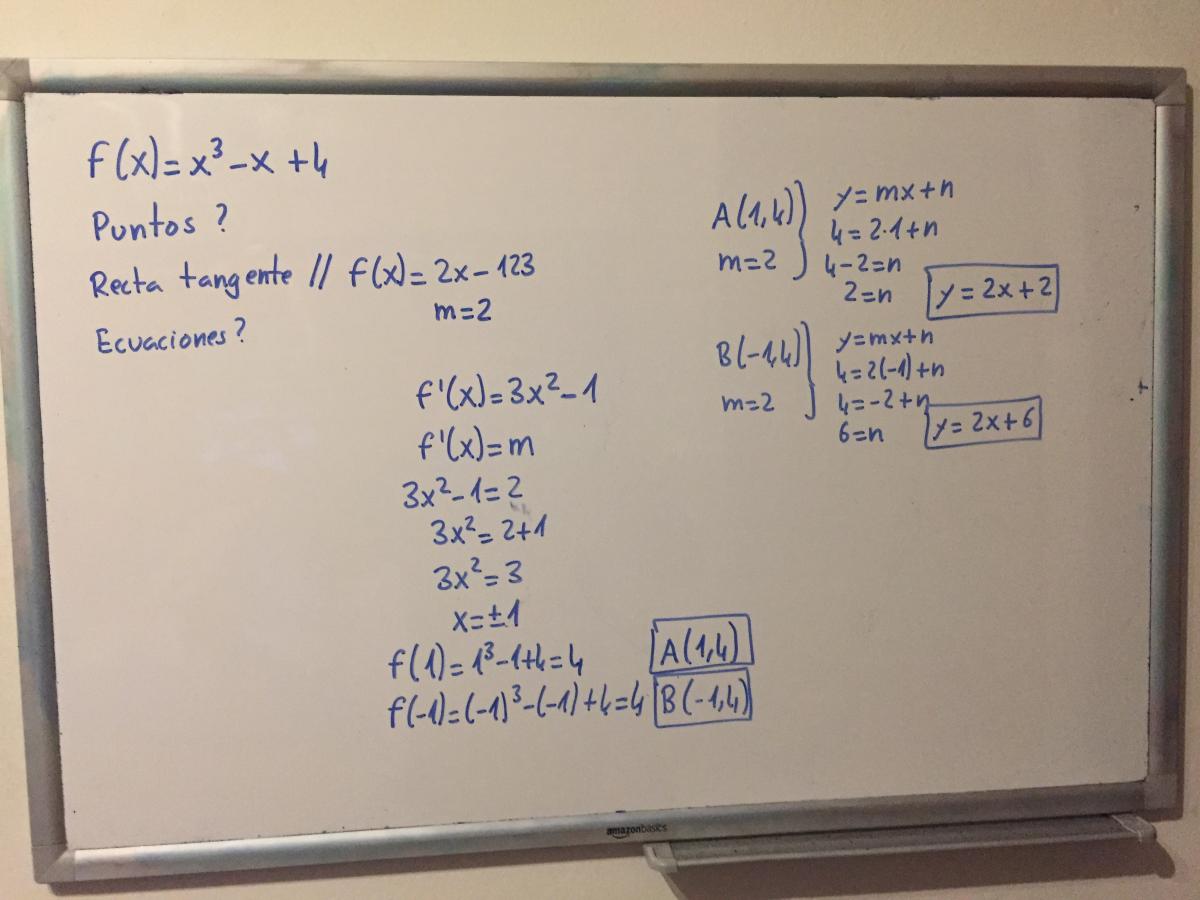 f(x)=x³-x+4
Puntos?
Recta tangente // f(x)=2x-123
m=2
Ecuaciones?
f'(x)=3x²-1
f'(x)=m
3x²-1=2
3x²=2+1
3x²=3
x=±1
f(1)=1³-1+4=4 A(1,4)
f(-1)=(-1)³-(-1)+4=4 B(-1,4)
A(1,4)
m=2
y=mx+n
4=2·1+n
4-2=n
2=n y=2x+2
B(-1,4)
m=2
y=mx+n
4=2(-1)+n
4=-2+n
6=n y=2x+6
amazonbasics